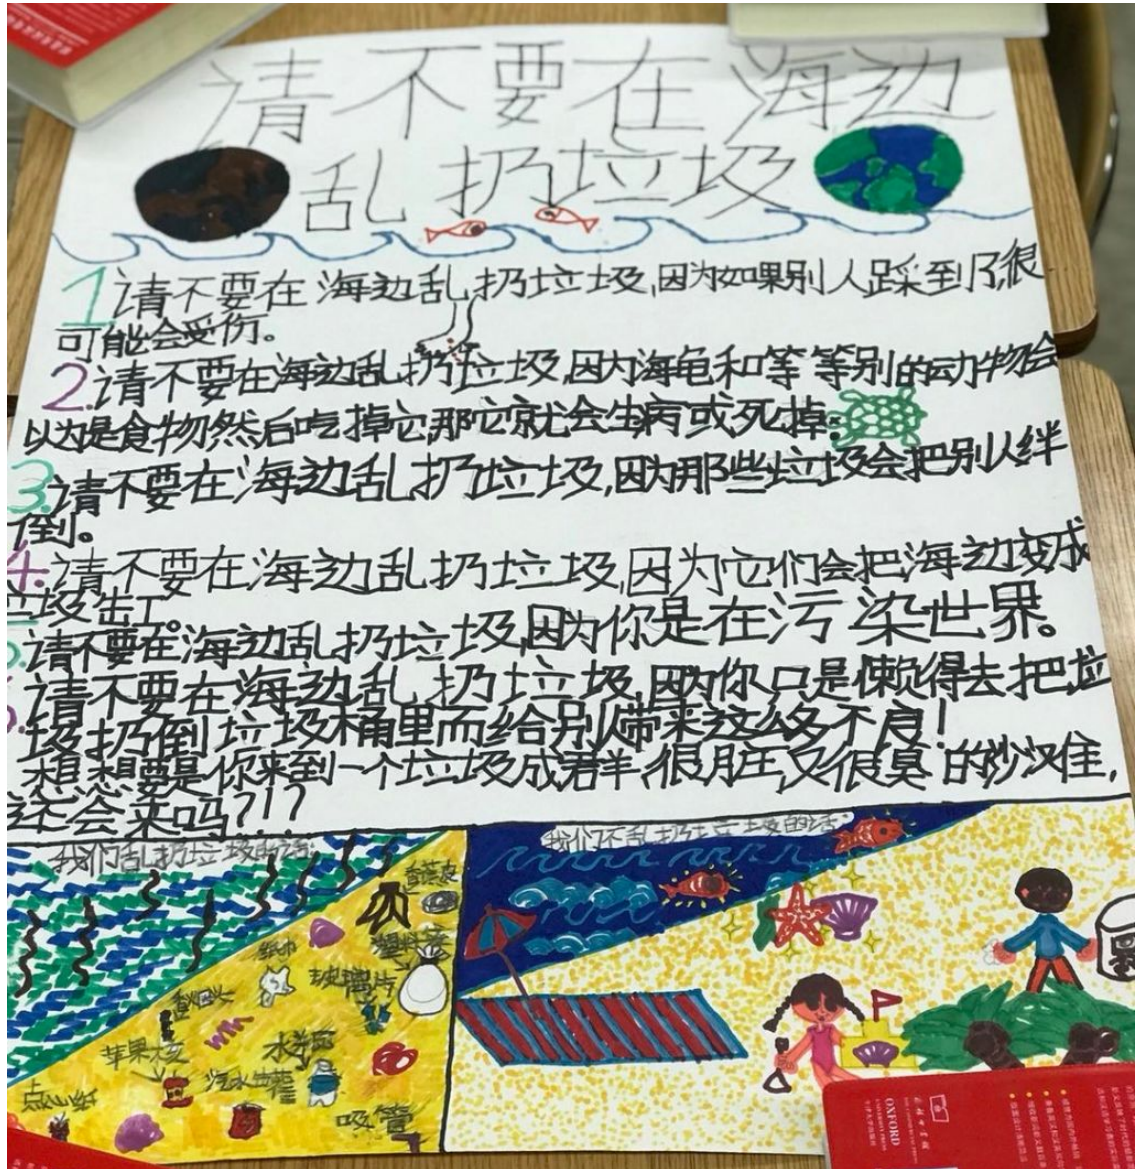 请不要在海边
乱扔垃圾
1 请不要在海边乱扔垃圾,因为如果别人踩到了,很
可能会受伤。
2.请不要在海边乱扔垃圾,因为海龟和等等别的动物会
以为是食物然后吃掉它,那它就会生病或死掉。
3.请不要在海边乱扔垃圾,因为那些垃圾会把别人绊
倒。
4.请不要在海边乱扔垃圾,因为它们会把海边变成
垃圾
请不要在海边乱扔垃圾,因为你是在污染世界。
请不要在海边乱扔垃圾,因为你只是懒得去把垃
圾扔倒垃圾桶里而给别人带来这么多不良!
想想要是你来到一个垃圾成群,很脏又很臭的沙滩,
还会来吗?!?
我们乱扔垃圾的话:
我们不乱扔垃圾的话:
香蕉皮
塑料袋
纸巾
玻璃片
苹果核
水瓶
汽水罐
点心纸
吸管
OXFORD